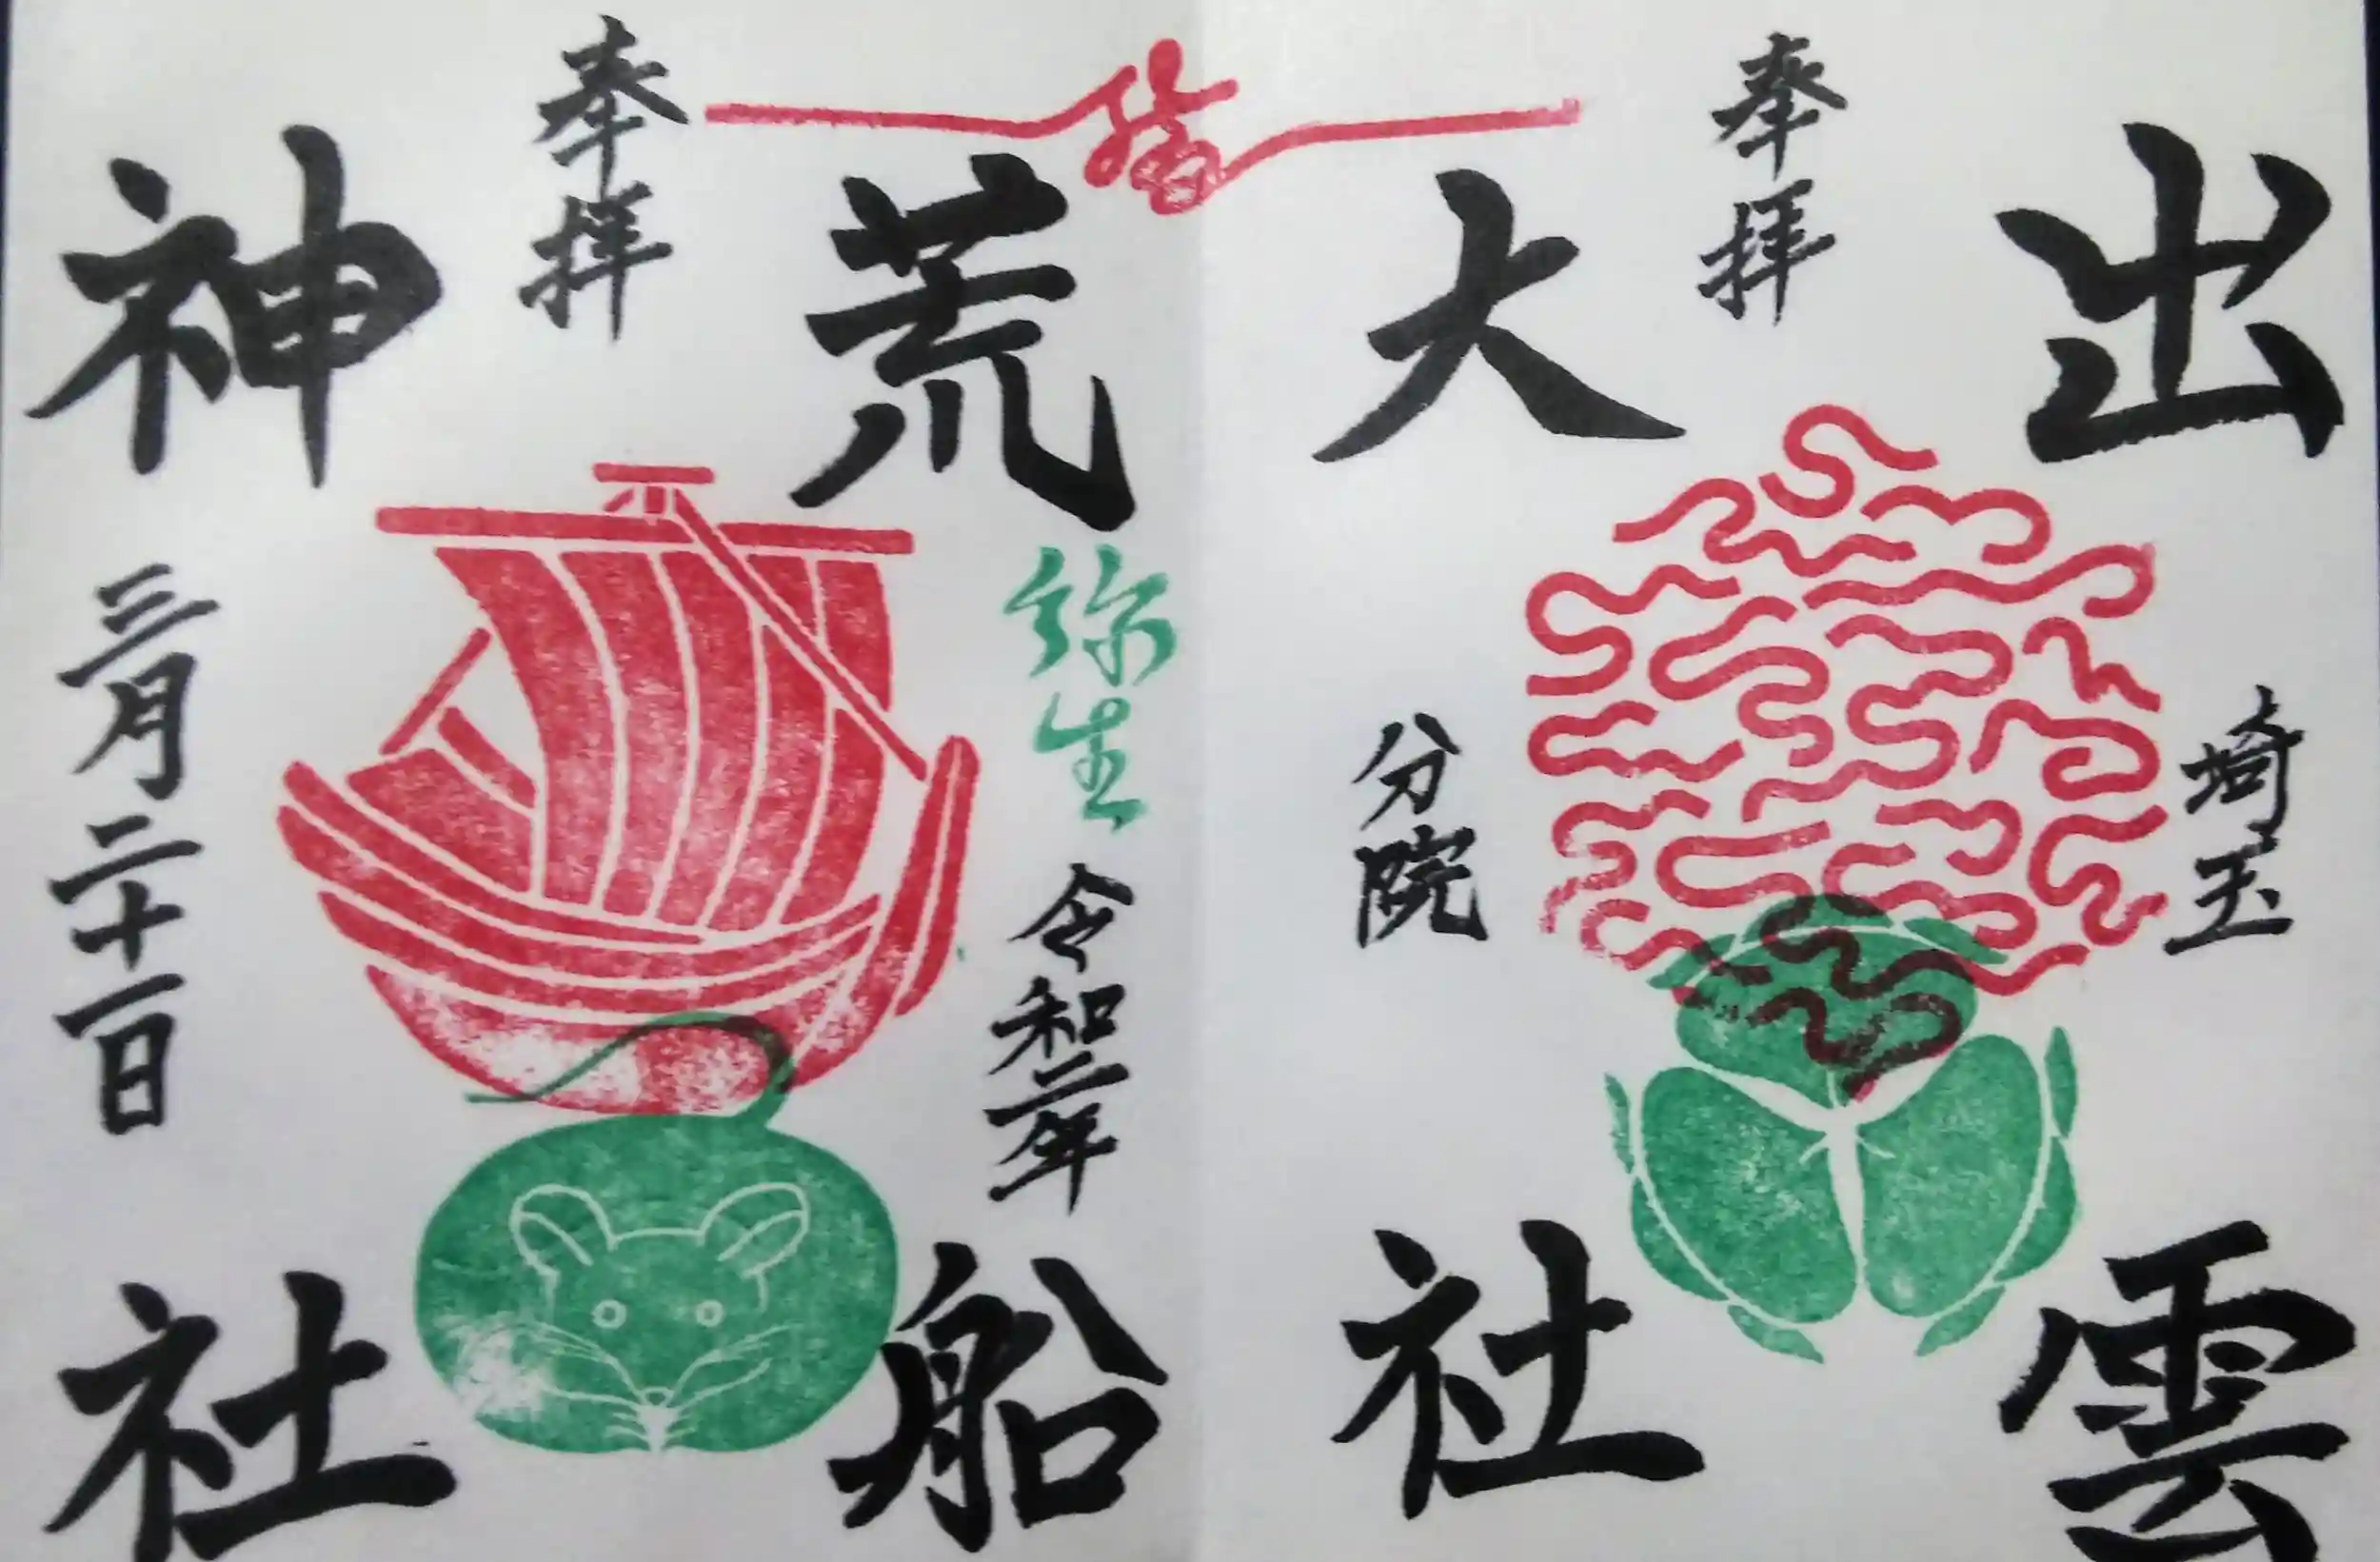 出雲
奉拝
大社
埼玉
分院
荒船
奉拝
神社
弥生
令和二年
三月二十一日